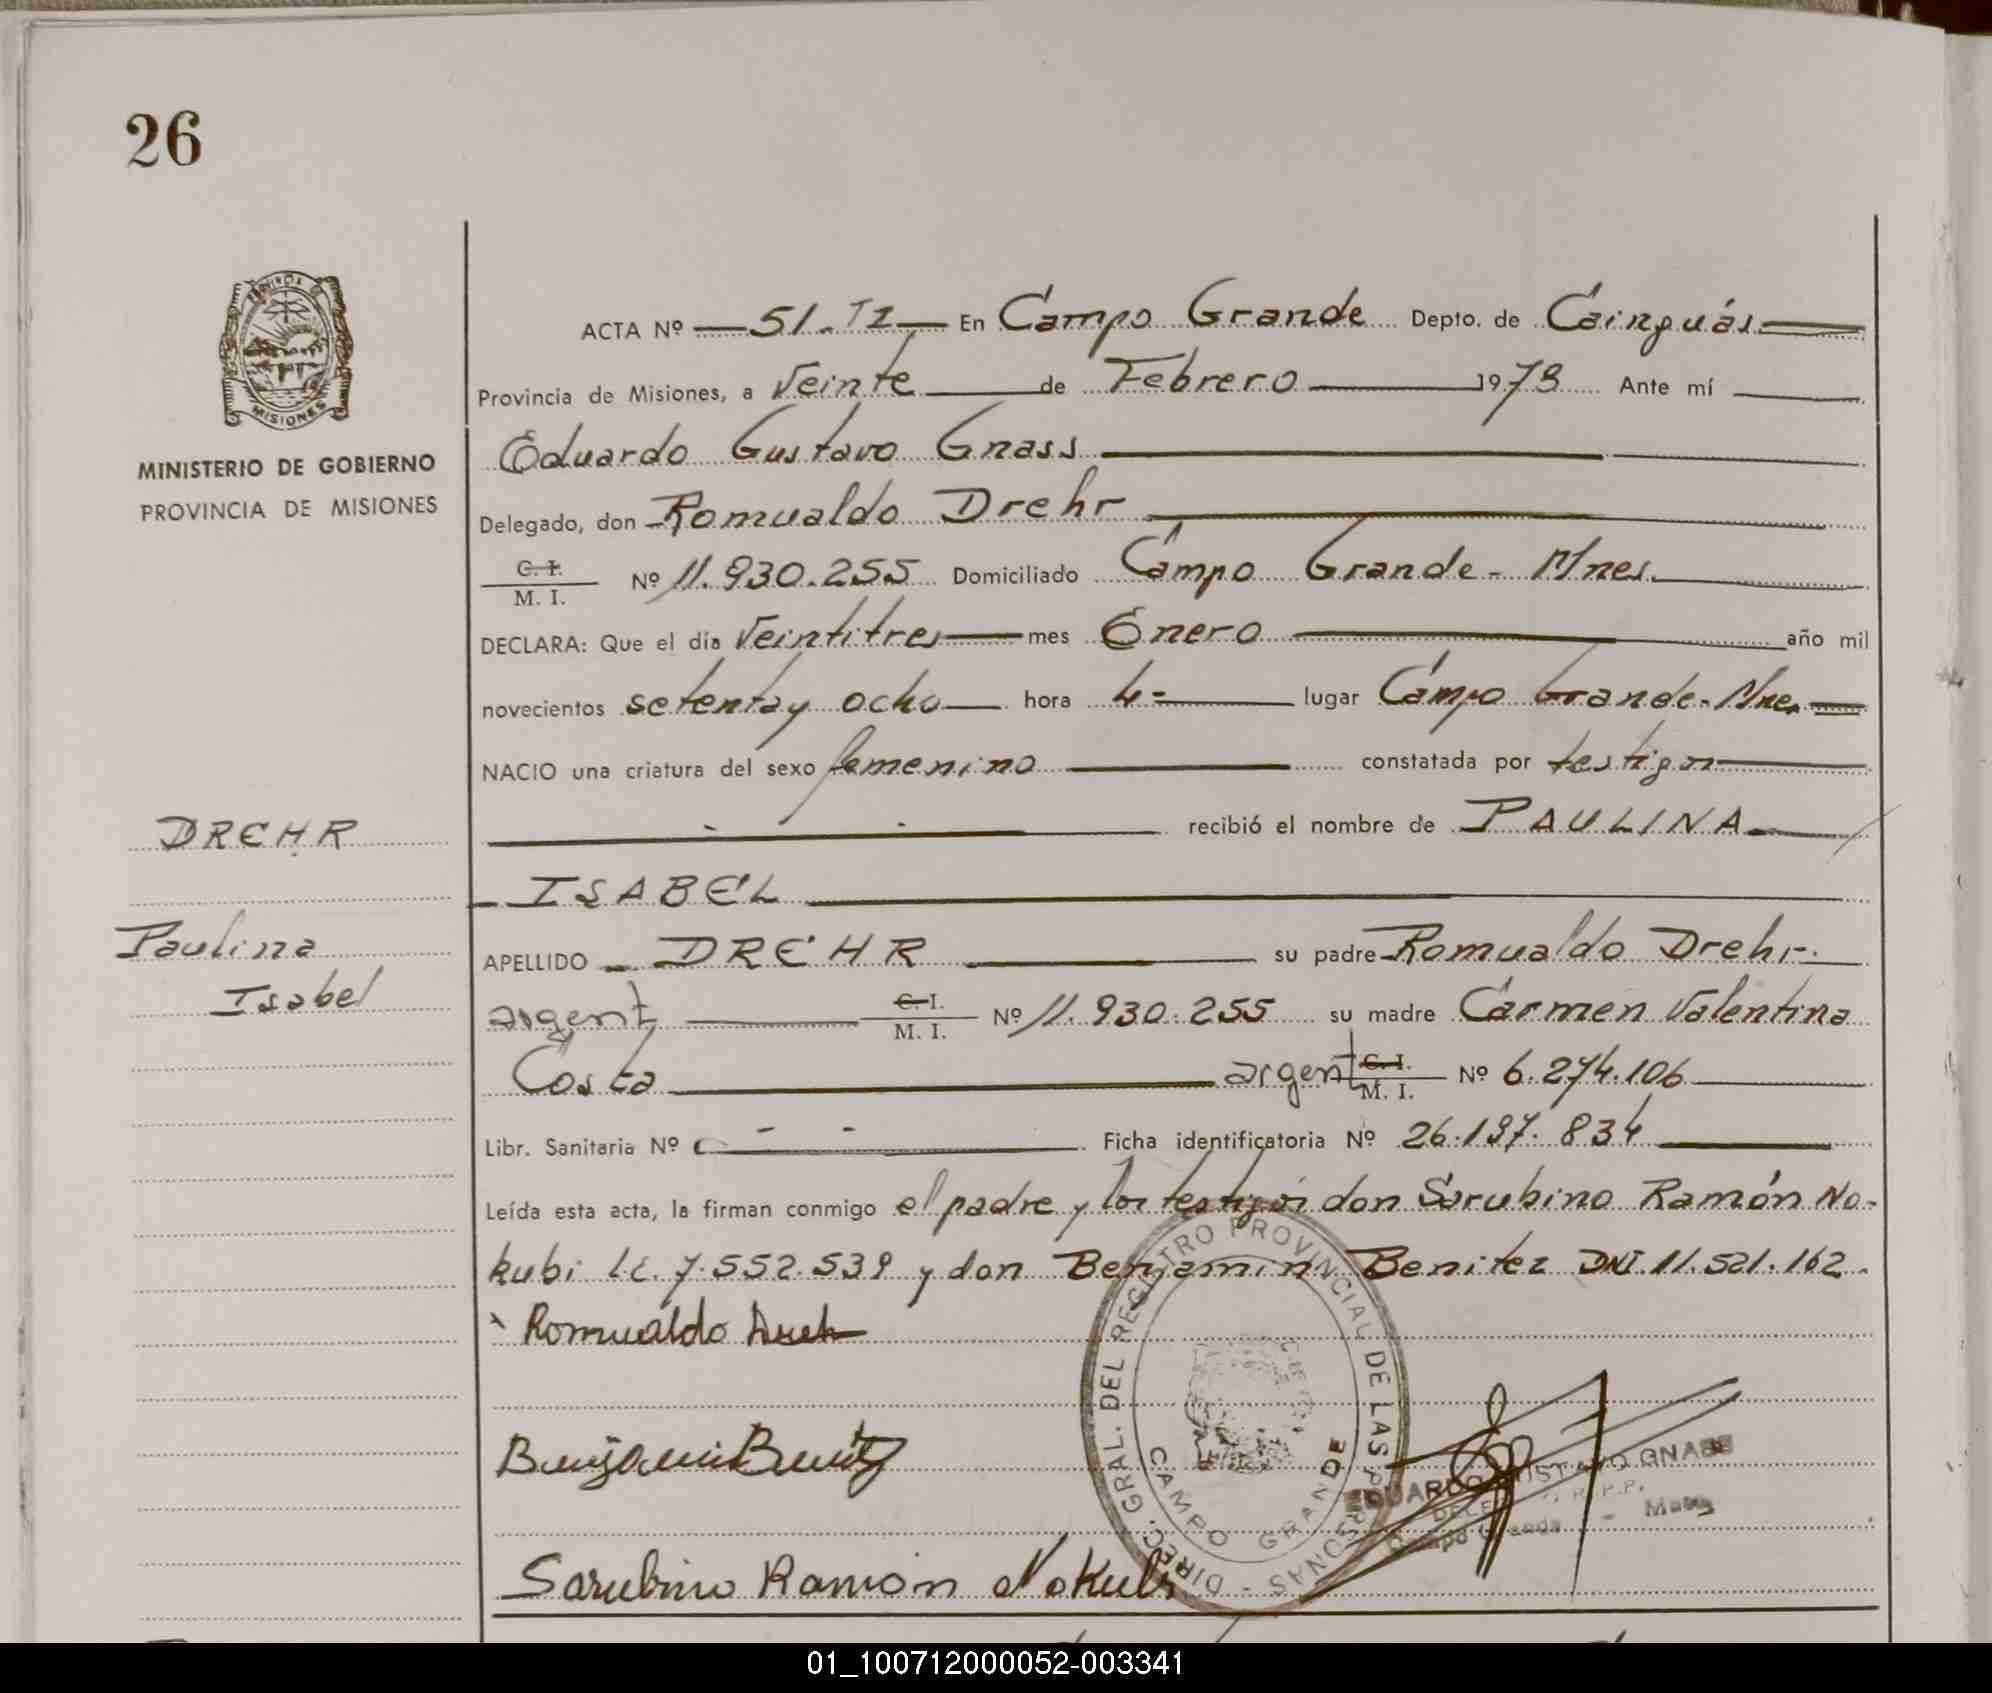 26
PROVINCIA DE
MISIONES
MINISTERIO DE GOBIERNO
PROVINCIA DE MISIONES
ACTA Nº 51. TI En Campo Grande Depto. de Cainguás
Provincia de Misiones, a Veinte de Febrero 1978 Ante mí
Eduardo Gustavo Gnass
Delegado, don Romualdo Drehr
C. I.
M. I. Nº 11.930.255 Domiciliado Campo Grande - Mnes.
DECLARA: Que el día Veintitres mes Enero año mil
novecientos setenta y ocho hora 4= lugar Campo Grande - Mnes
NACIO una criatura del sexo femenino constatada por testigos
recibió el nombre de PAULINA
ISABEL
DREHR
Paulina
Isabel
APELLIDO DREHR su padre Romualdo Drehr
argent C. I.
M. I. Nº 11.930.255 su madre Carmen Valentina
Costa argent C. I.
M. I. Nº 6.274.106
Libr. Sanitaria Nº - - Ficha identificatoria Nº 26.197.834
Leída esta acta, la firman conmigo el padre y los testigos don Sorubino Ramón No-
kubi l.c. 7.552.539 y don Benjamin Benitez DNI 11.521.162.
Romualdo Dreh
Benjamin Benitez
Sorubino Ramon Nokubi
DIREC. GRAL. DEL REGISTRO PROVINCIAL DE LAS PERSONAS -
CAMPO GRANDE
EDUARDO GUSTAVO GNASS
Campo Grande - Mnes
01_100712000052-003341